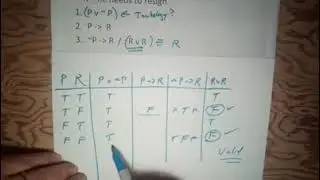 needs to resign
1. (P v ¬P) ← Tautology?
2. P → R
3. ¬P → R / (R v R) ≡ R
P R P v ¬P P → R ¬P → R R v R
T T T T
T F T F F T F (F) ✓
F T T T
F F T F T F (F) ✓
Valid